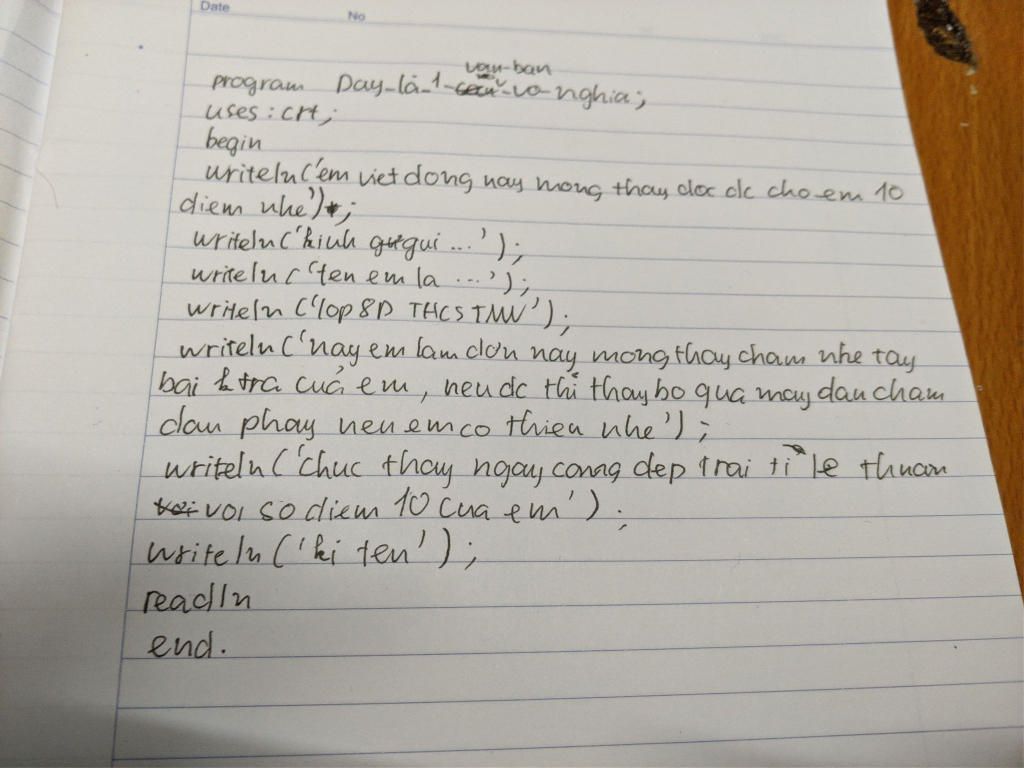 Date
No
van-ban
program Day-là-1-vo-nghia;
uses: crt;
begin
writeln('em viet dong nay mong thay doc dc cho em 10
diem nhe');
writeln('kinh gui ...');
writeln('ten em la ...');
writeln('lop 8D THCS TMN');
writeln('nay em lam dơn nay mong thay cham nhe tay
bai k tra cuả em, neu dc thi thay bo qua may dau cham
dau phay neu em co thieu nhe');
writeln('chuc thay ngay cang dep trai ti le thuan
voi so diem 10 cua em');
writeln('ki ten');
readln
end.